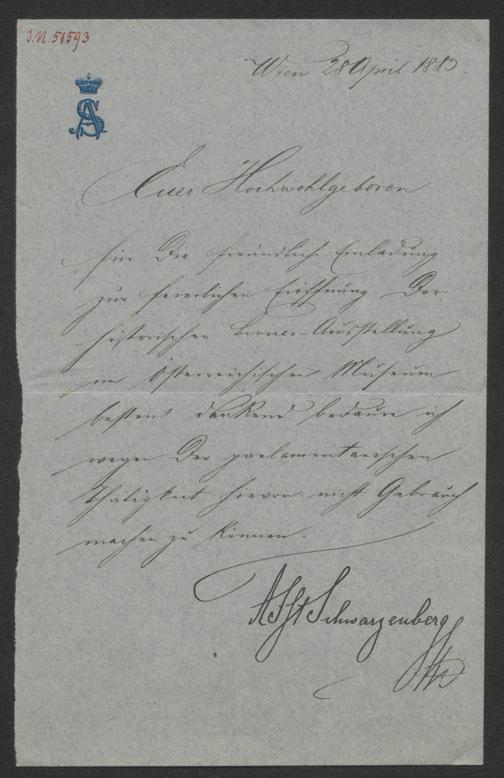 I.N. 51593
Wien 28 April 1883.
AS
Euer Hochwohlgeboren
für die freundliche Einladung
zur feierlichen Eröffnung der
historischen Bronce-Ausstellung
im Österreichischen Museum
bestens dankend bedaure ich
wegen der parlamentarischen
Thätigkeit hievon nicht Gebrauch
machen zu können.
Schwarzenberg